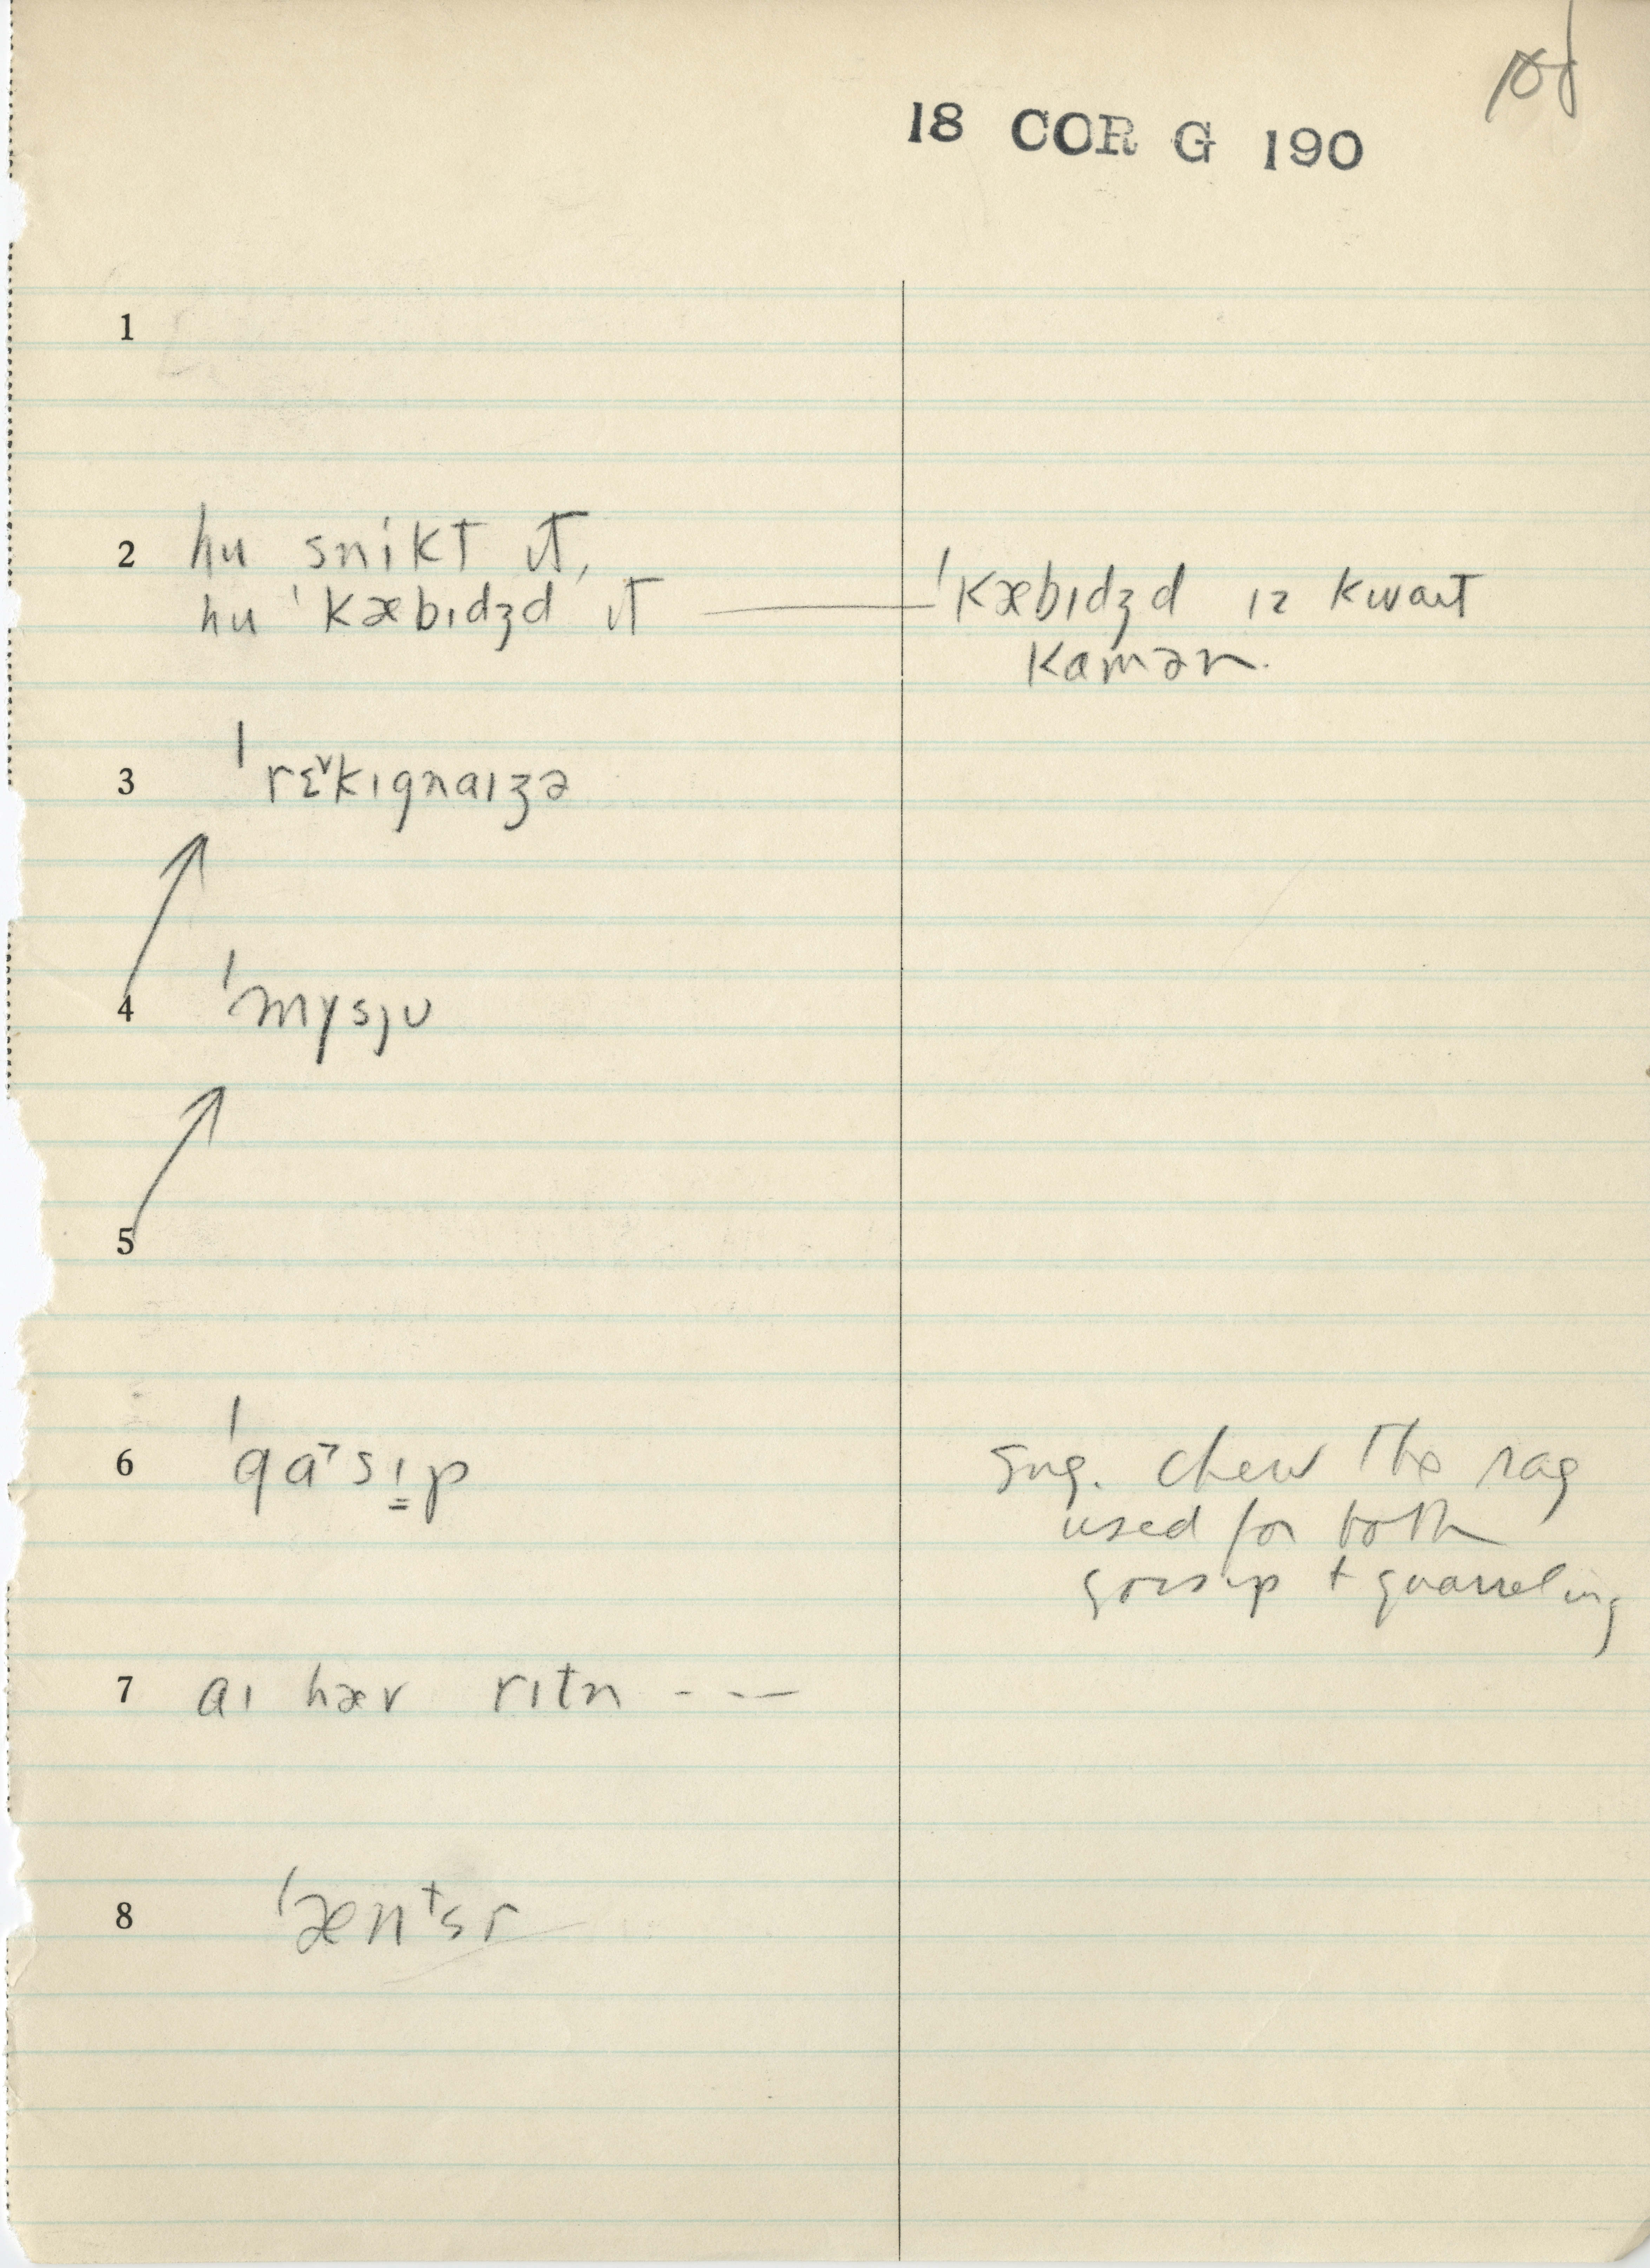 18 COR G 190
1
2 hu snikt ɪt,
hu ˈkæbɪdʒd ɪt — ˈkæbɪdʒd ɪz kwaɪt
kamən.
3 ˈrɛ˅kɪgnaɪzə
4 ˈmysjʊ
5
6 ˈgɑ˃sɪ̳p
sug. chew the rag
used for both
gossip + quarreling
7 aɪ hæv rɪtn - - —
8 ˈænᵗsr